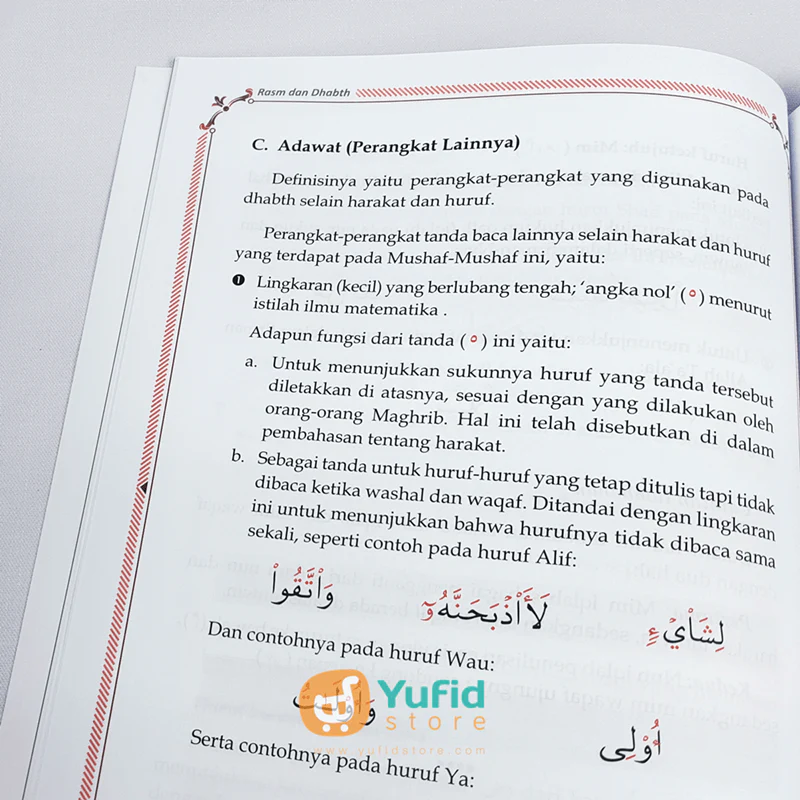 Rasm dan Dhabth
C. Adawat (Perangkat Lainnya)
Definisinya yaitu perangkat-perangkat yang digunakan pada
dhabth selain harakat dan huruf.
Perangkat-perangkat tanda baca lainnya selain harakat dan huruf
yang terdapat pada Mushaf-Mushaf ini, yaitu:
❶ Lingkaran (kecil) yang berlubang tengah; ‘angka nol’ (ه) menurut
istilah ilmu matematika .
Adapun fungsi dari tanda (ه) ini yaitu:
a. Untuk menunjukkan sukunnya huruf yang tanda tersebut
diletakkan di atasnya, sesuai dengan yang dilakukan oleh
orang-orang Maghrib. Hal ini telah disebutkan di dalam
pembahasan tentang harakat.
b. Sebagai tanda untuk huruf-huruf yang tetap ditulis tapi tidak
dibaca ketika washal dan waqaf. Ditandai dengan lingkaran
ini untuk menunjukkan bahwa hurufnya tidak dibaca sama
sekali, seperti contoh pada huruf Alif:
لِشَاْيۡءٍ لَأَاْذۡبَحَنَّهُۥٓ وَاْتَّقُواْ
Dan contohnya pada huruf Wau:
أُوْلِى
Yufid
store
www.yufidstore.com
Serta contohnya pada huruf Ya: